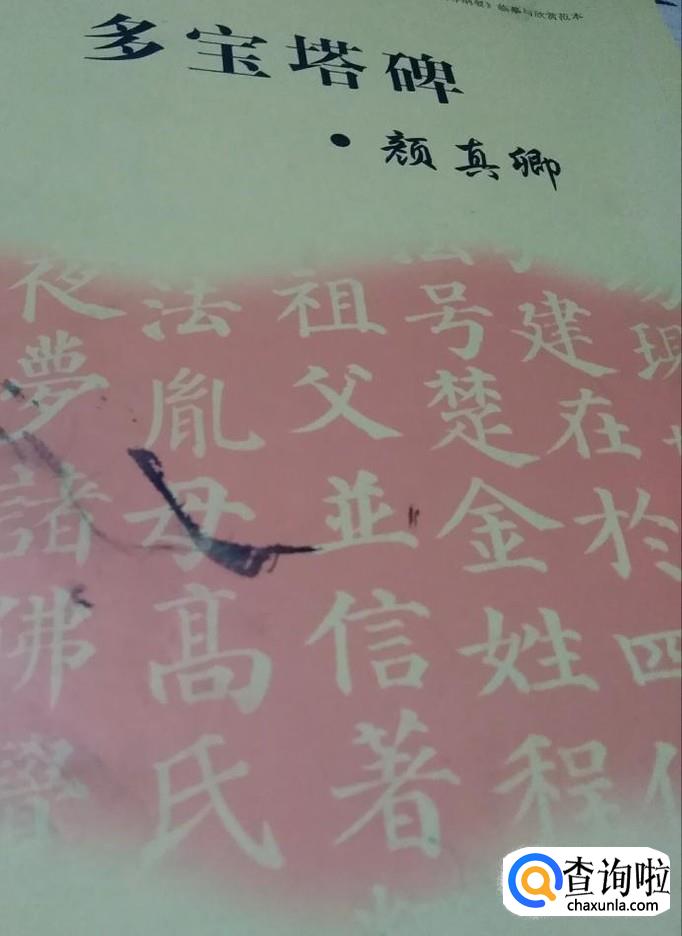 》临摹与欣赏范本
多宝塔碑
·颜真卿
現
建在於四
号楚金姓程
祖父並信著
法胤母高氏
夜夢諸佛
查询啦
chaxunla.com